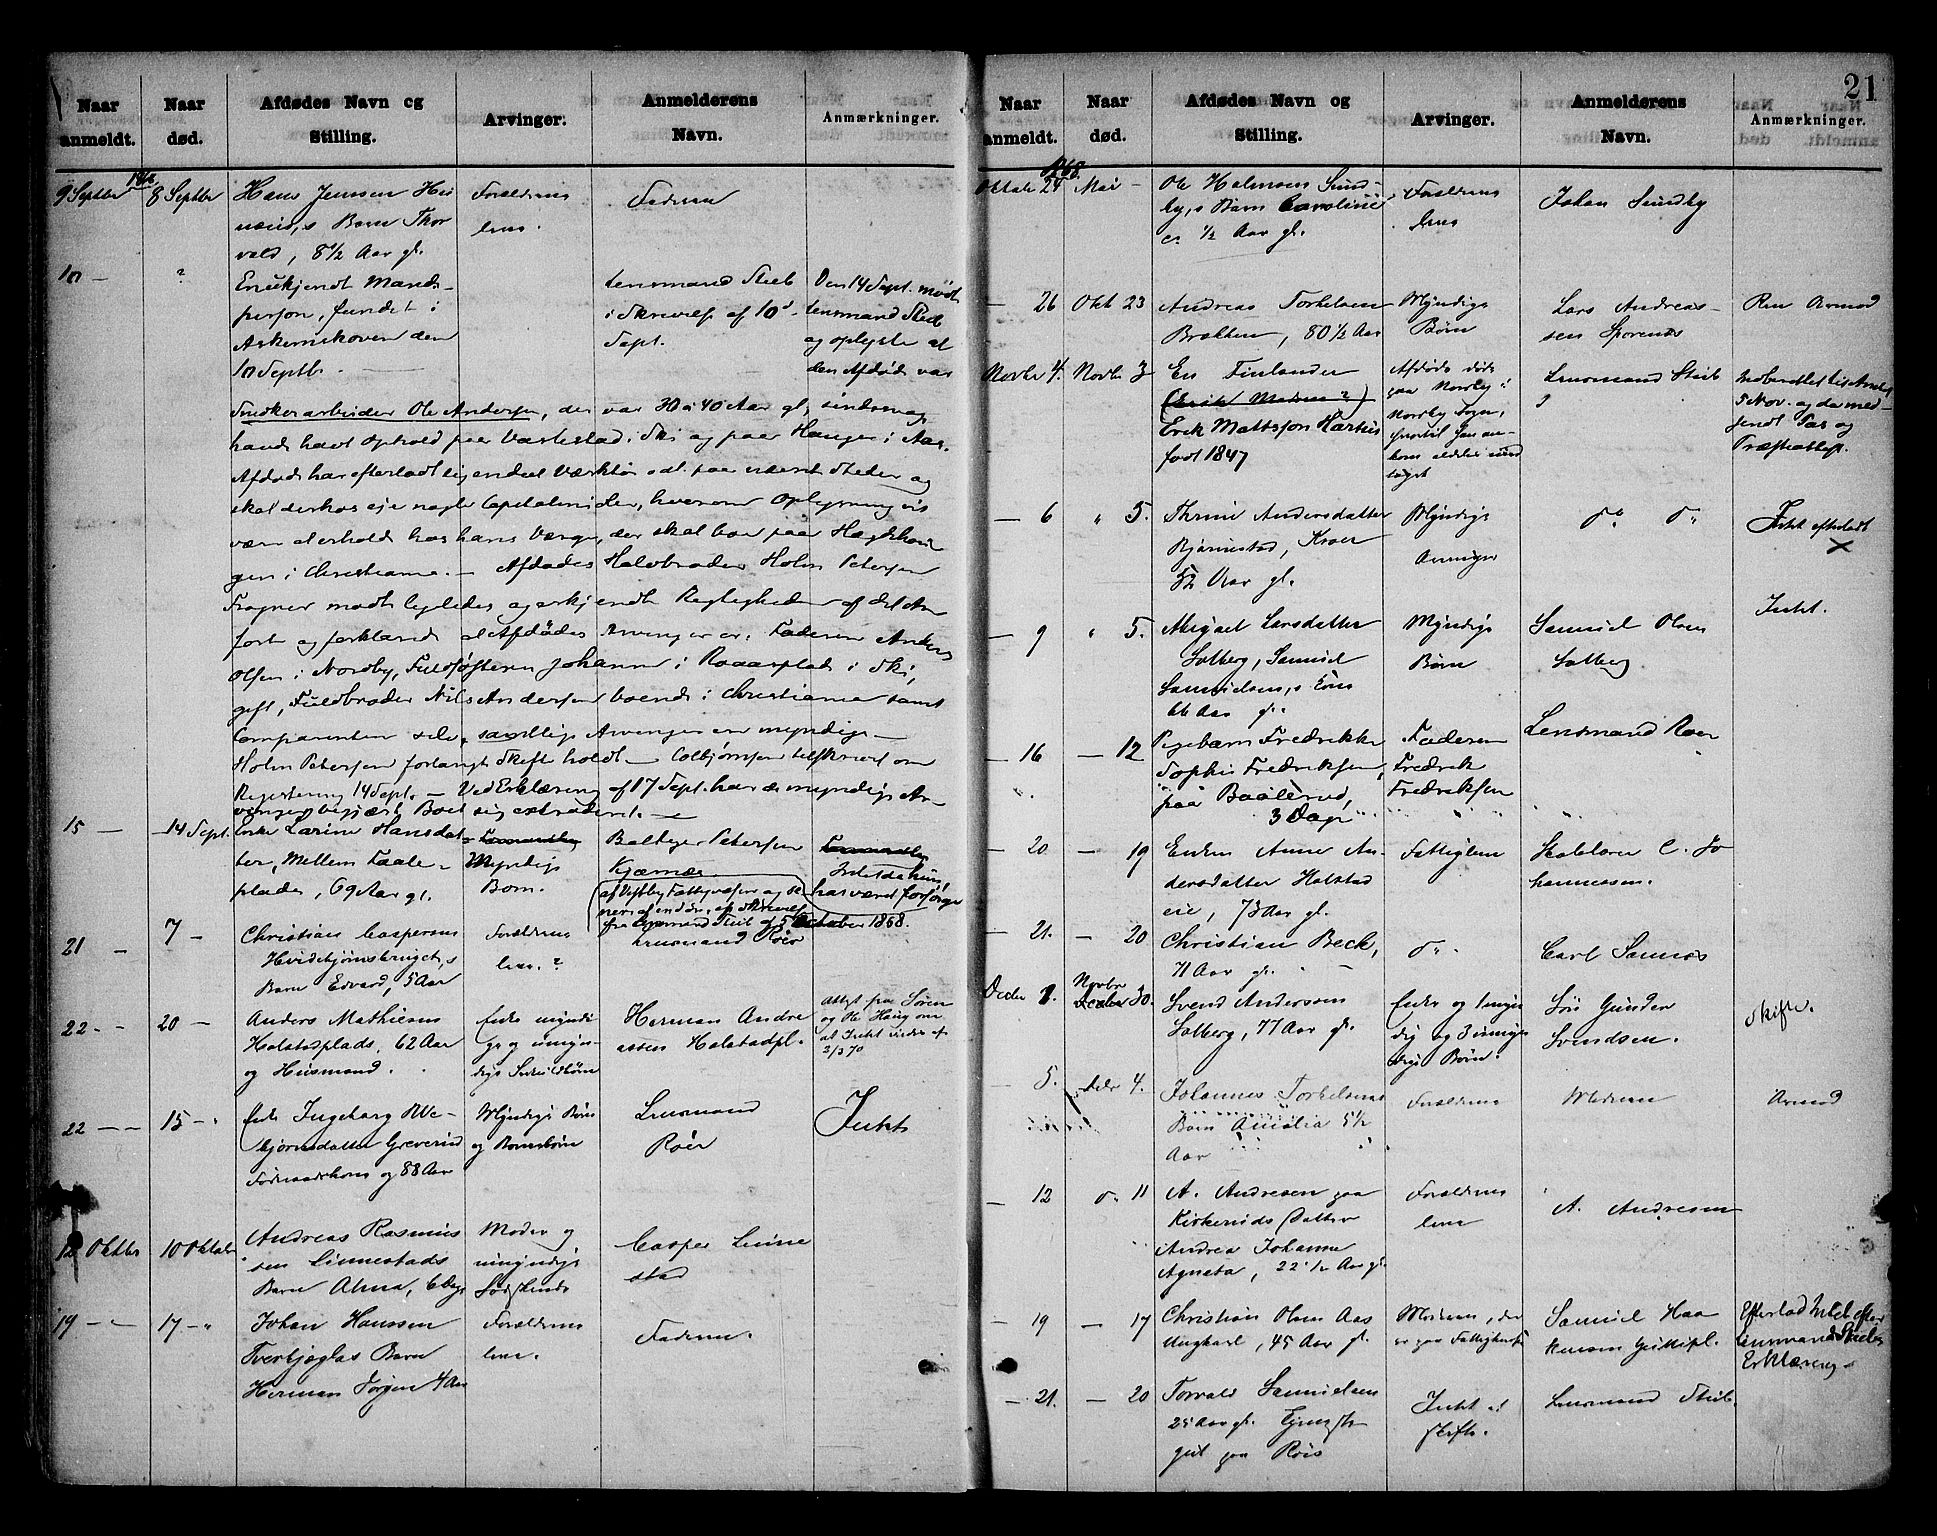 21
Naar anmeldt.
Naar død.
Afdødes Navn og Stilling.
Arvinger.
Anmelderens Navn.
Anmærkninger.
1868
9 Septbr
8 Septbr
Hans Jensen
Barn Thor
vald, 8½ Aar gl.
Forældrene
Faderen
10 —
?
En ukjendt Mands-
person, fundet i
Askemskoven den
10 Septb.
Lensmand Stub
i Skrivelse af 10de
Sept.
Den 14 Sept. mødte
Lensmand Stub
og oplyste at
den Afdøde var
Snedkerarbeider Ole Andersen, der var 30 à 40 Aar gl,
havde havt Ophold paa Vastestad i Ski og paa Haugen i Aas.
Afdøde har efterladt sig endeel Værktøi paa Steder og
skal derhos eie nogle Capitalmidler, hvorom Oplysning vis
være at erholde hos hans Værge, der skal bo paa
gen i Christiania. — Afdødes Halvbroder Holm Petersen
Frogner mødte ligeledes og erkjendte Rigtigheden af det An
førte og forklarede at Afdødes Arvinger er: Faderen Anders
Olsen i Nordby, Fuldsøsteren Johanne i Roaasplads i Ski,
gift, Fuldbroder Nils Andersen boende i Christiania samt
Comparenten selv, samtlige Arvinger ere myndige —
Holm Petersen forlangte Skifte holdt — Colbjørnsen tilskrevet om
Registrering 14 Sept. — Ved Erklæring af 17 Sept. har de myndige Ar-
vinger begjært Boet sig extraderet. —
15 —
14 Sept.
Enke Larine Hansdat
ter, Mellem Faale-
plads, 69 Aar gl.
Myndige
Børn.
Balteger Petersen
Kjærnæs
af Vestby Fattigvæsen og se
fra Lensmand Stub af 5 October 1868.
Intet da hun
har været forsørget
21 —
7 —
Christian Caspersens
Hvidstjørnsbraatet,s
Barn Edvard, 5 Aar
Forældrene
lever. ?
Lensmand Roer
22 —
20 —
Anders Mathiesens
Holstadplads, 62 Aar
og Husmand.
Enke myndi
ge og umyn-
dige Børn
Herman Andre
assen Holstadpl.
Attest fra Søren
og Ole Haug om
at Intet
2/3 70
22 — —
15 —
Enke Ingeborg
bjørnsdatter Greverud
og 88 Aar
Myndige Børn
og Barnebørn
Lensmand
Roer
Intet
12 Oktbr
10 Oktober
Andreas Rasmus
sen Linnestads
Barn Alma, 6 Dage
Moder og
umyndige
Sødskende
Casper Linne
stad
19 — —
17 —
Johan Hanssen
Tverbjøglas Barn
Herman Jørgen 4 Aar
Forældrene
lever.
Faderen.
Naar anmeldt.
Naar død.
Afdødes Navn og Stilling.
Arvinger.
Anmelderens Navn.
Anmærkninger.
1868
Oktober 24
Mai —
Ole Halvorsen Sund-
by,s Barn Caroline
c. ½ Aar gl.
Forældrene
lever
Johan Sundby
— 26
Okt 23
Andreas Torkelsen
Brækken, 80½ Aar
Myndige
Børn
Lars Andreas-
sen Sporenæs
Ren Armod
Novbr 4.
Novbr 3
En Finlænder
Erik Mattsson
født 1847
Afdøde døde
paa Nordby i
Nordby Sogn,
Lensmand Stub
5 Nov. og da med-
sendt Pas og
Præsteattest.
— 6
" 5.
Thrine Andersdatter
Bjørnestad, Kroer
52 Aar gl.
Myndige
Arvinger
do do
Intet efterladt
×
— 9
" 5.
Abigael Larsdatter
Solberg, Samuel
Samuelsens Enke
66 Aar gl.
Myndige
Børn
Samuel Olsen
Solberg
Intet.
— 16
— 12
Pigebarn Fredrikke
Sophie Fredriksen,
paa Baalerud,
3 Dage
Faderen
Fredrik
Fredriksen
Lensmand Roer
— 20
— 19
Enken Anne An
dersdatter Holstad
eie, 73 Aar gl.
Fattiglem
Skolelærer C. Jo
hannessen.
— 21.
— 20
Christian Beck,
71 Aar gl. —
do
Carl Samnæs
Decbr 1.
Novbr 30.
Svend Andersen
Solberg, 77 Aar gl.
Enke og 1 myn
dig og 3 umyn
dige Børn.
Søn Gunder
Svendsen.
Skifte.
— 5.
Decbr 4.
Johannes Torkelsens
Barn Amalia 5½
Aar
Forældrene
Moderen
Armod
— 12
do 11
A. Andresen paa
Kirkeruds Datter
Andrea Johanne
Agnete, 22 ½ Aar gl.
Forældrene
lever
A. Andresen
— 19
— 17
Christian Olsen Aas
Ungkarl, 45 Aar gl.
Moderen, der
er paa
Samuel Haa
kensen
Efterlod Intet efter
Lensmand Stubs
Erklæring
— 21.
— 20
Torvald Samuelsen
25 Aar gl. Tjeneste
gut paa Roer
Intet at
skifte.
Lensmand Stub.